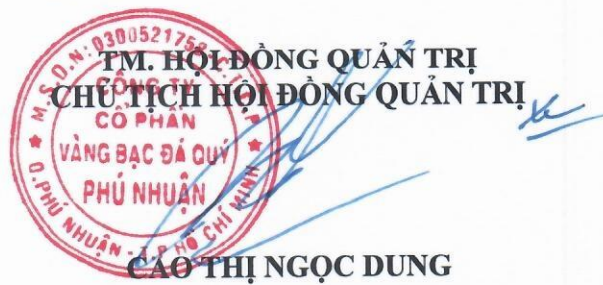 TM. HỘI ĐỒNG QUẢN TRỊ
CHỦ TỊCH HỘI ĐỒNG QUẢN TRỊ
M.S.D.N: 0300521758
CÔNG TY
CỔ PHẦN
VÀNG BẠC ĐÁ QUÝ
PHÚ NHUẬN
Q.PHÚ NHUẬN - T.P HỒ CHÍ MINH
CAO THỊ NGỌC DUNG